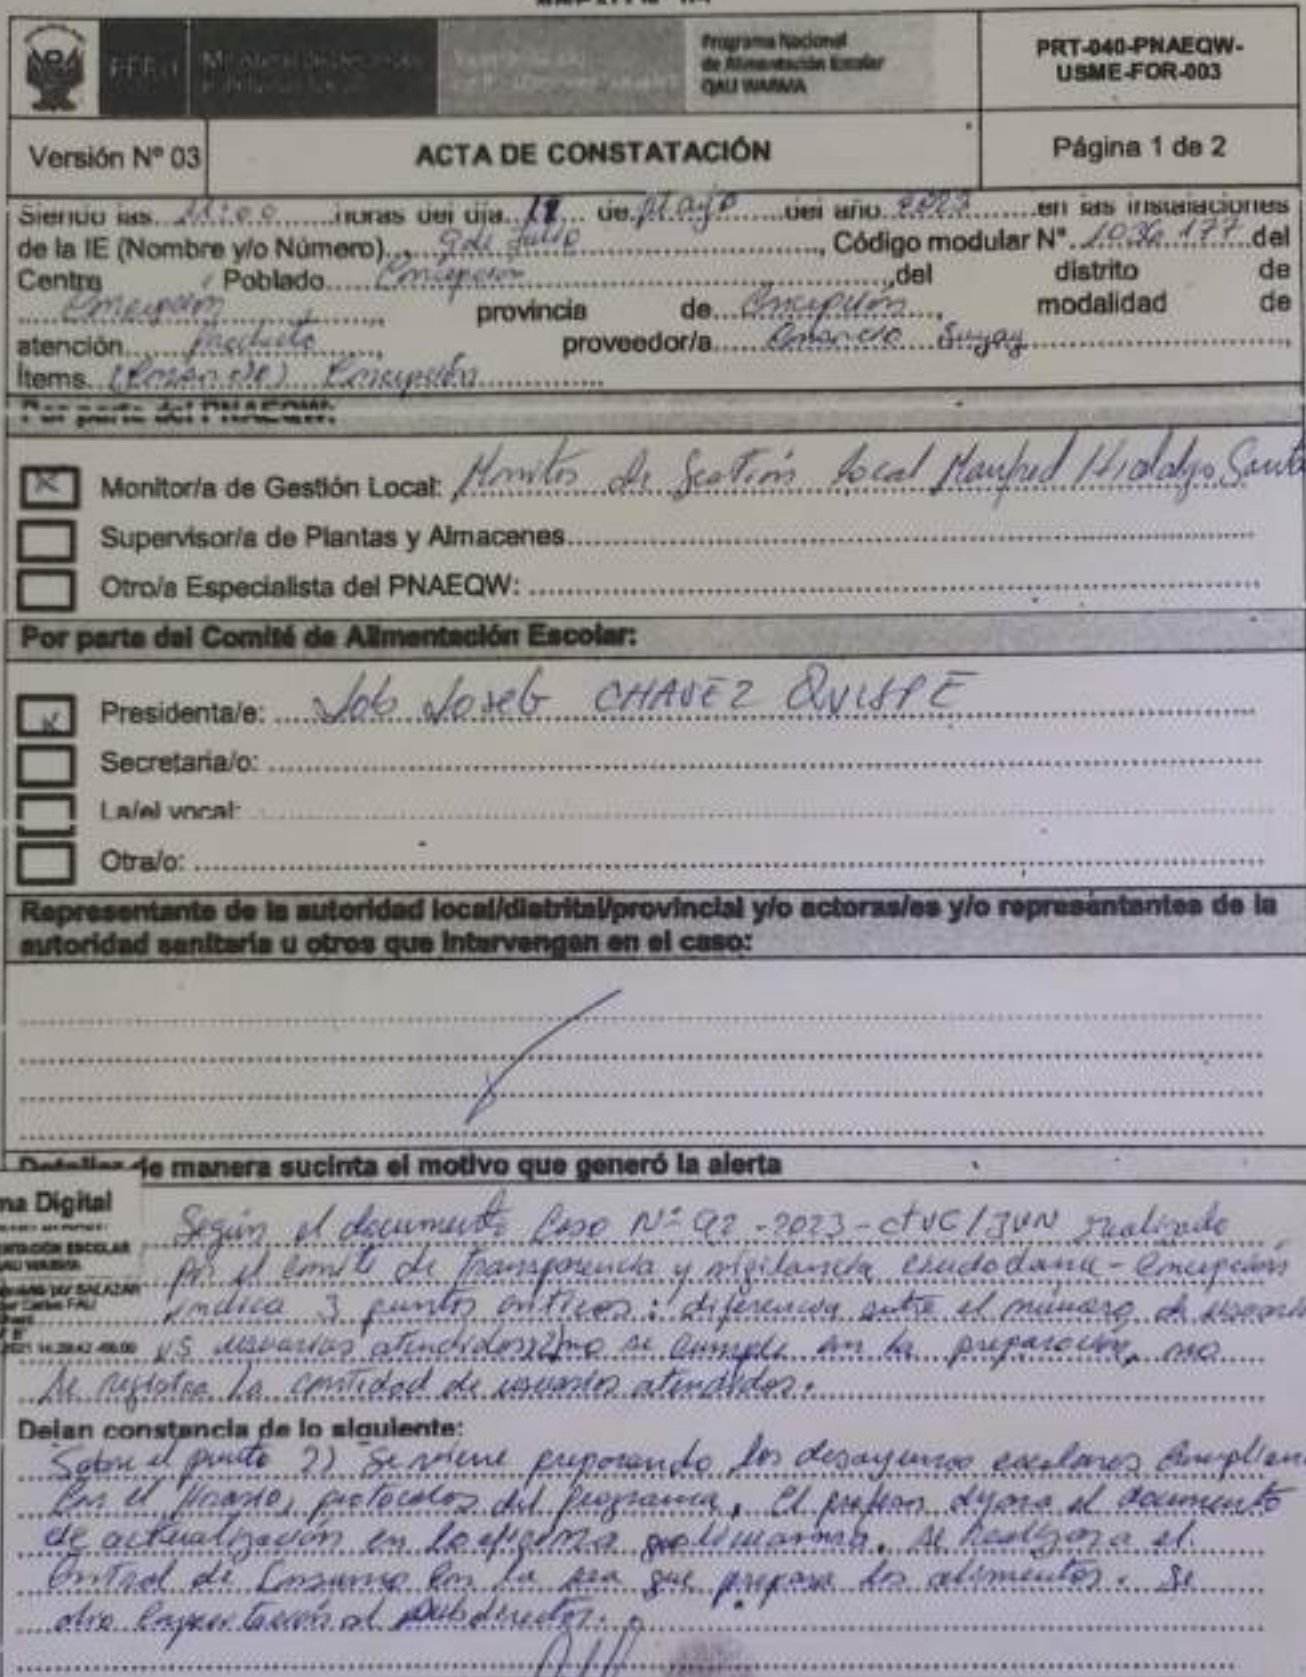 PERÚ
Programa Nacional
de Alimentación Escolar
QALI WARMA
PRT-040-PNAEQW-
USME-FOR-003
Versión Nº 03
ACTA DE CONSTATACIÓN
Página 1 de 2
Siendo las 11:00 horas del día de Mayo del año 2023 en las instalaciones
de la IE (Nombre y/o Número) 9 de Julio, Código modular N° 1036177 del
Centro Poblado Concepción del distrito de
Concepción, provincia de Concepción, modalidad de
atención producto, proveedor/a Consorcio
Ítems Concepción
Por parte del PNAEQW:
Monitor/a de Gestión Local: Monitor de Gestión Local Manfred Hidalgo
Supervisor/a de Plantas y Almacenes
Otro/a Especialista del PNAEQW:
Por parte del Comité de Alimentación Escolar:
Presidenta/e: Job CHAVEZ QUISPE
Secretaria/o:
La/el vocal:
Otra/o:
Representante de la autoridad local/distrital/provincial y/o actoras/es y/o representantes de la
autoridad sanitaria u otros que intervengan en el caso:
de manera sucinta el motivo que generó la alerta
ma Digital
Según el documento Caso Nº 92-2023-CTVC/JUN realizado
por el Comité de Transparencia y vigilancia ciudadana - Concepción
indica 3 puntos críticos: diferencia entre el número de
vs usuarios atendidos, 2) no se cumple con la preparación, no
se registra la cantidad de usuarios atendidos.
Dejan constancia de lo siguiente:
Sobre el punto 2) Se viene preparando los desayunos escolares
con el horario, protocolos del programa. El profesor el documento
de actualización en la se realizara el
control de consumo con la sra que prepara los alimentos. Se
dio al subdirector.